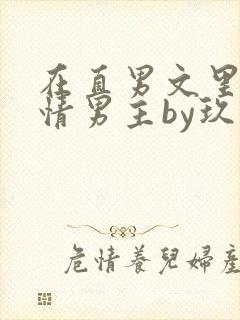 在直男文里
情男主by玖
危情養兒婦產